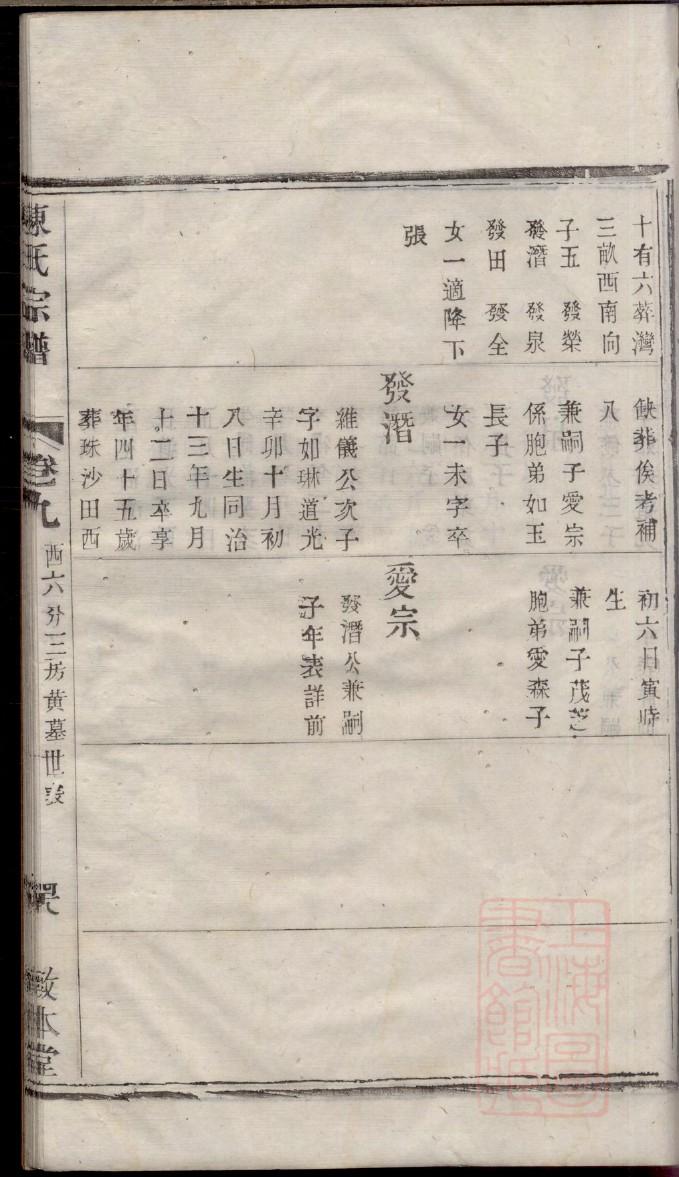 十有六葬灣
三畝西南向
子五 發榮
發潛 發泉
發田 發全
女一適降下
張
缺葬俟考補
八
兼嗣子愛宗
係胞弟如玉
長子
女一未字卒
發潛
維儀公次子
字如琳道光
辛卯十月初
八日生同治
十三年九月
十二日卒享
年四十五歲
葬珠沙田西
初六日寅時
生
兼嗣子茂芝
胞弟愛森子
愛宗
發潛公兼嗣
子年表詳前
陳氏宗譜
卷九
西六分三房黃墓世表
敦本堂
上海圖書館藏